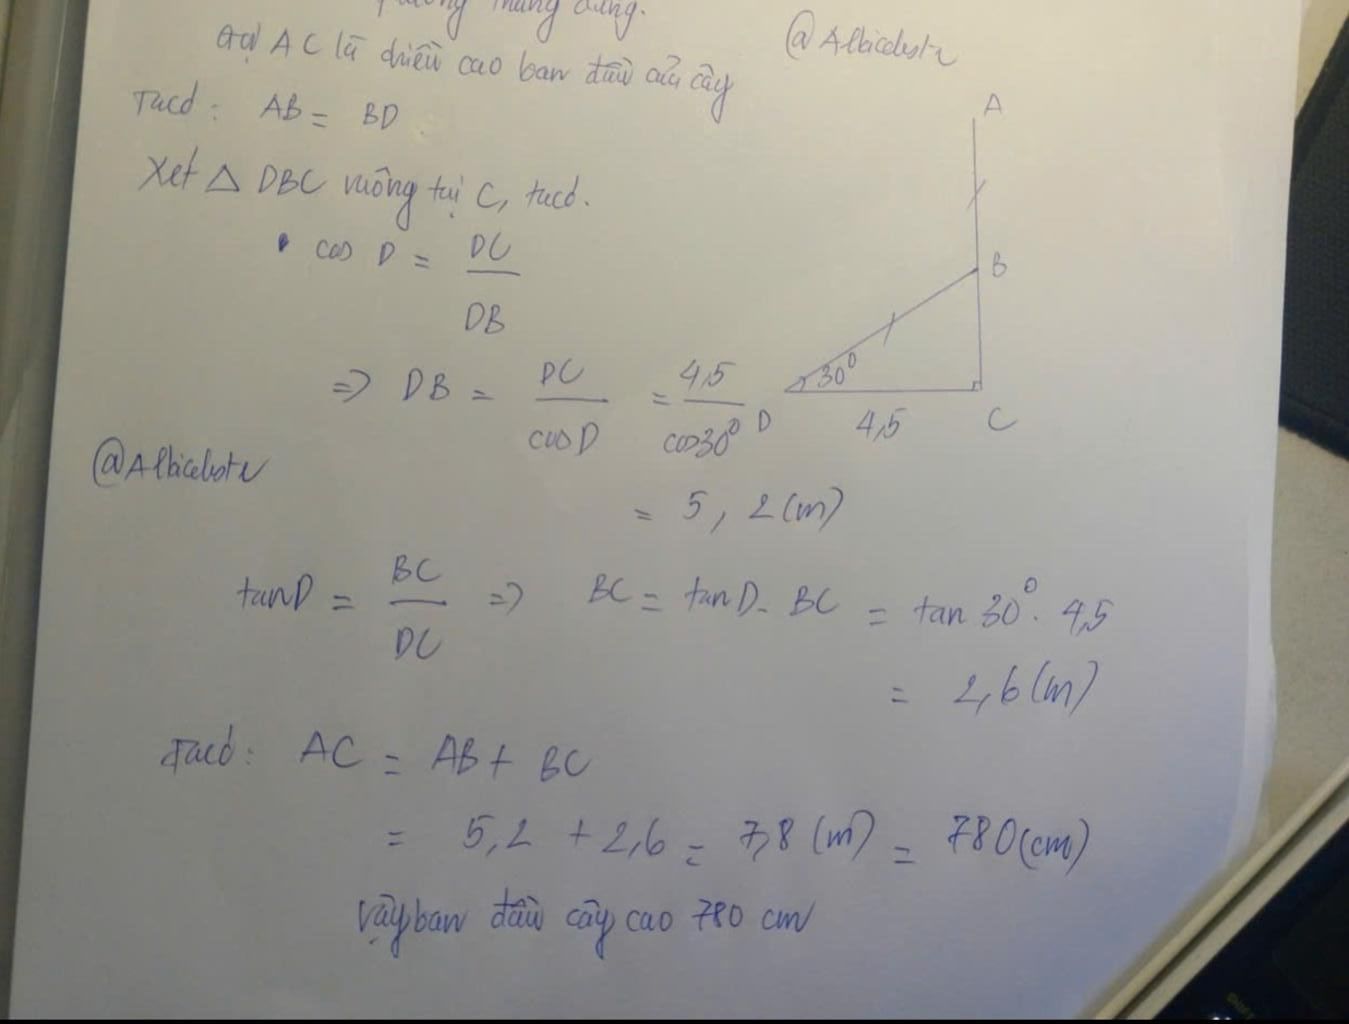 phương thẳng đứng.
@Albiceleste
Gọi AC là chiều cao ban đầu của cây
Tacó: AB = BD.
Xét △ DBC vuông tại C, tacó.
• cos D = DC / DB
⇒ DB = DC / cosD = 4,5 / cos30⁰
= 5,2 (m)
A
B
30⁰
D
4,5
C
@Albiceleste
tanD = BC / DC ⇒ BC = tanD. BC = tan 30⁰. 4,5
= 2,6 (m)
Tacó: AC = AB + BC
= 5,2 + 2,6 = 7,8 (m) = 780 (cm)
Vậy ban đầu cây cao 780 cm